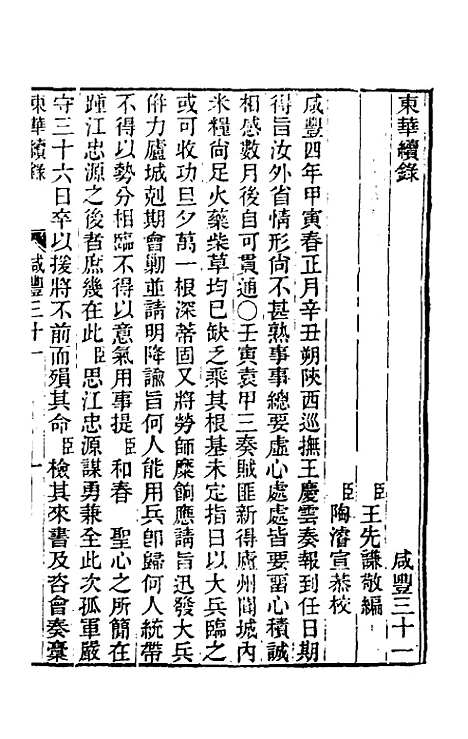 東華續錄
咸豐三十一
臣王先謙敬編
臣陶濬宣恭校
咸豐四年甲寅春正月辛丑朔陝西巡撫王慶雲奏報到任日期
得旨汝外省情形尙不甚熟事事總要虛心處處皆要畱心積誠
相感數月後自可貫通〇壬寅袁甲三奏賊匪新得廬州闔城內
米糧尙足火藥柴草均已缺之乘其根基未定指日以大兵臨之
或可收功旦夕萬一根深蒂固又將勞師糜餉應請旨迅發大兵
倂力廬城剋期會勦並請明降諭旨何人能用兵卽歸何人統帶
不得以勢分相臨不得以意氣用事提臣和春聖心之所簡在
踵江忠源之後者庶幾在此臣思江忠源謀勇兼全此次孤軍嚴
守三十六日卒以援將不前而殞其命臣檢其來書及咨會奏稾
東華續錄
咸豐三十一
一